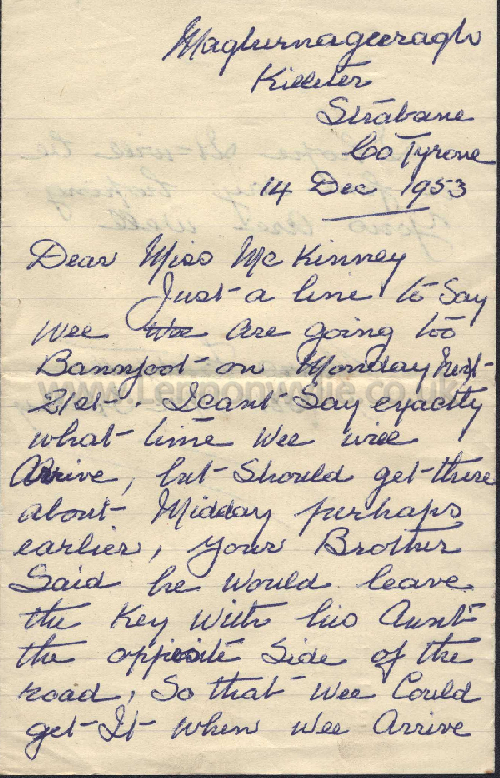 Maghernageeragh
Killeter
Strabane
Co Tyrone
14 Dec 1953
Dear Miss Mc Kinney
Just a line to Say
wee are going to
Bannfoot on Monday Next
21st. I cant Say exactly
what time Wee will
Arrive, but Should get there
about Midday perhaps
earlier, your Brother
Said he would leave
the Key With his Aunt
the opposite Side of the
road, So that Wee Could
get It when Wee Arrive